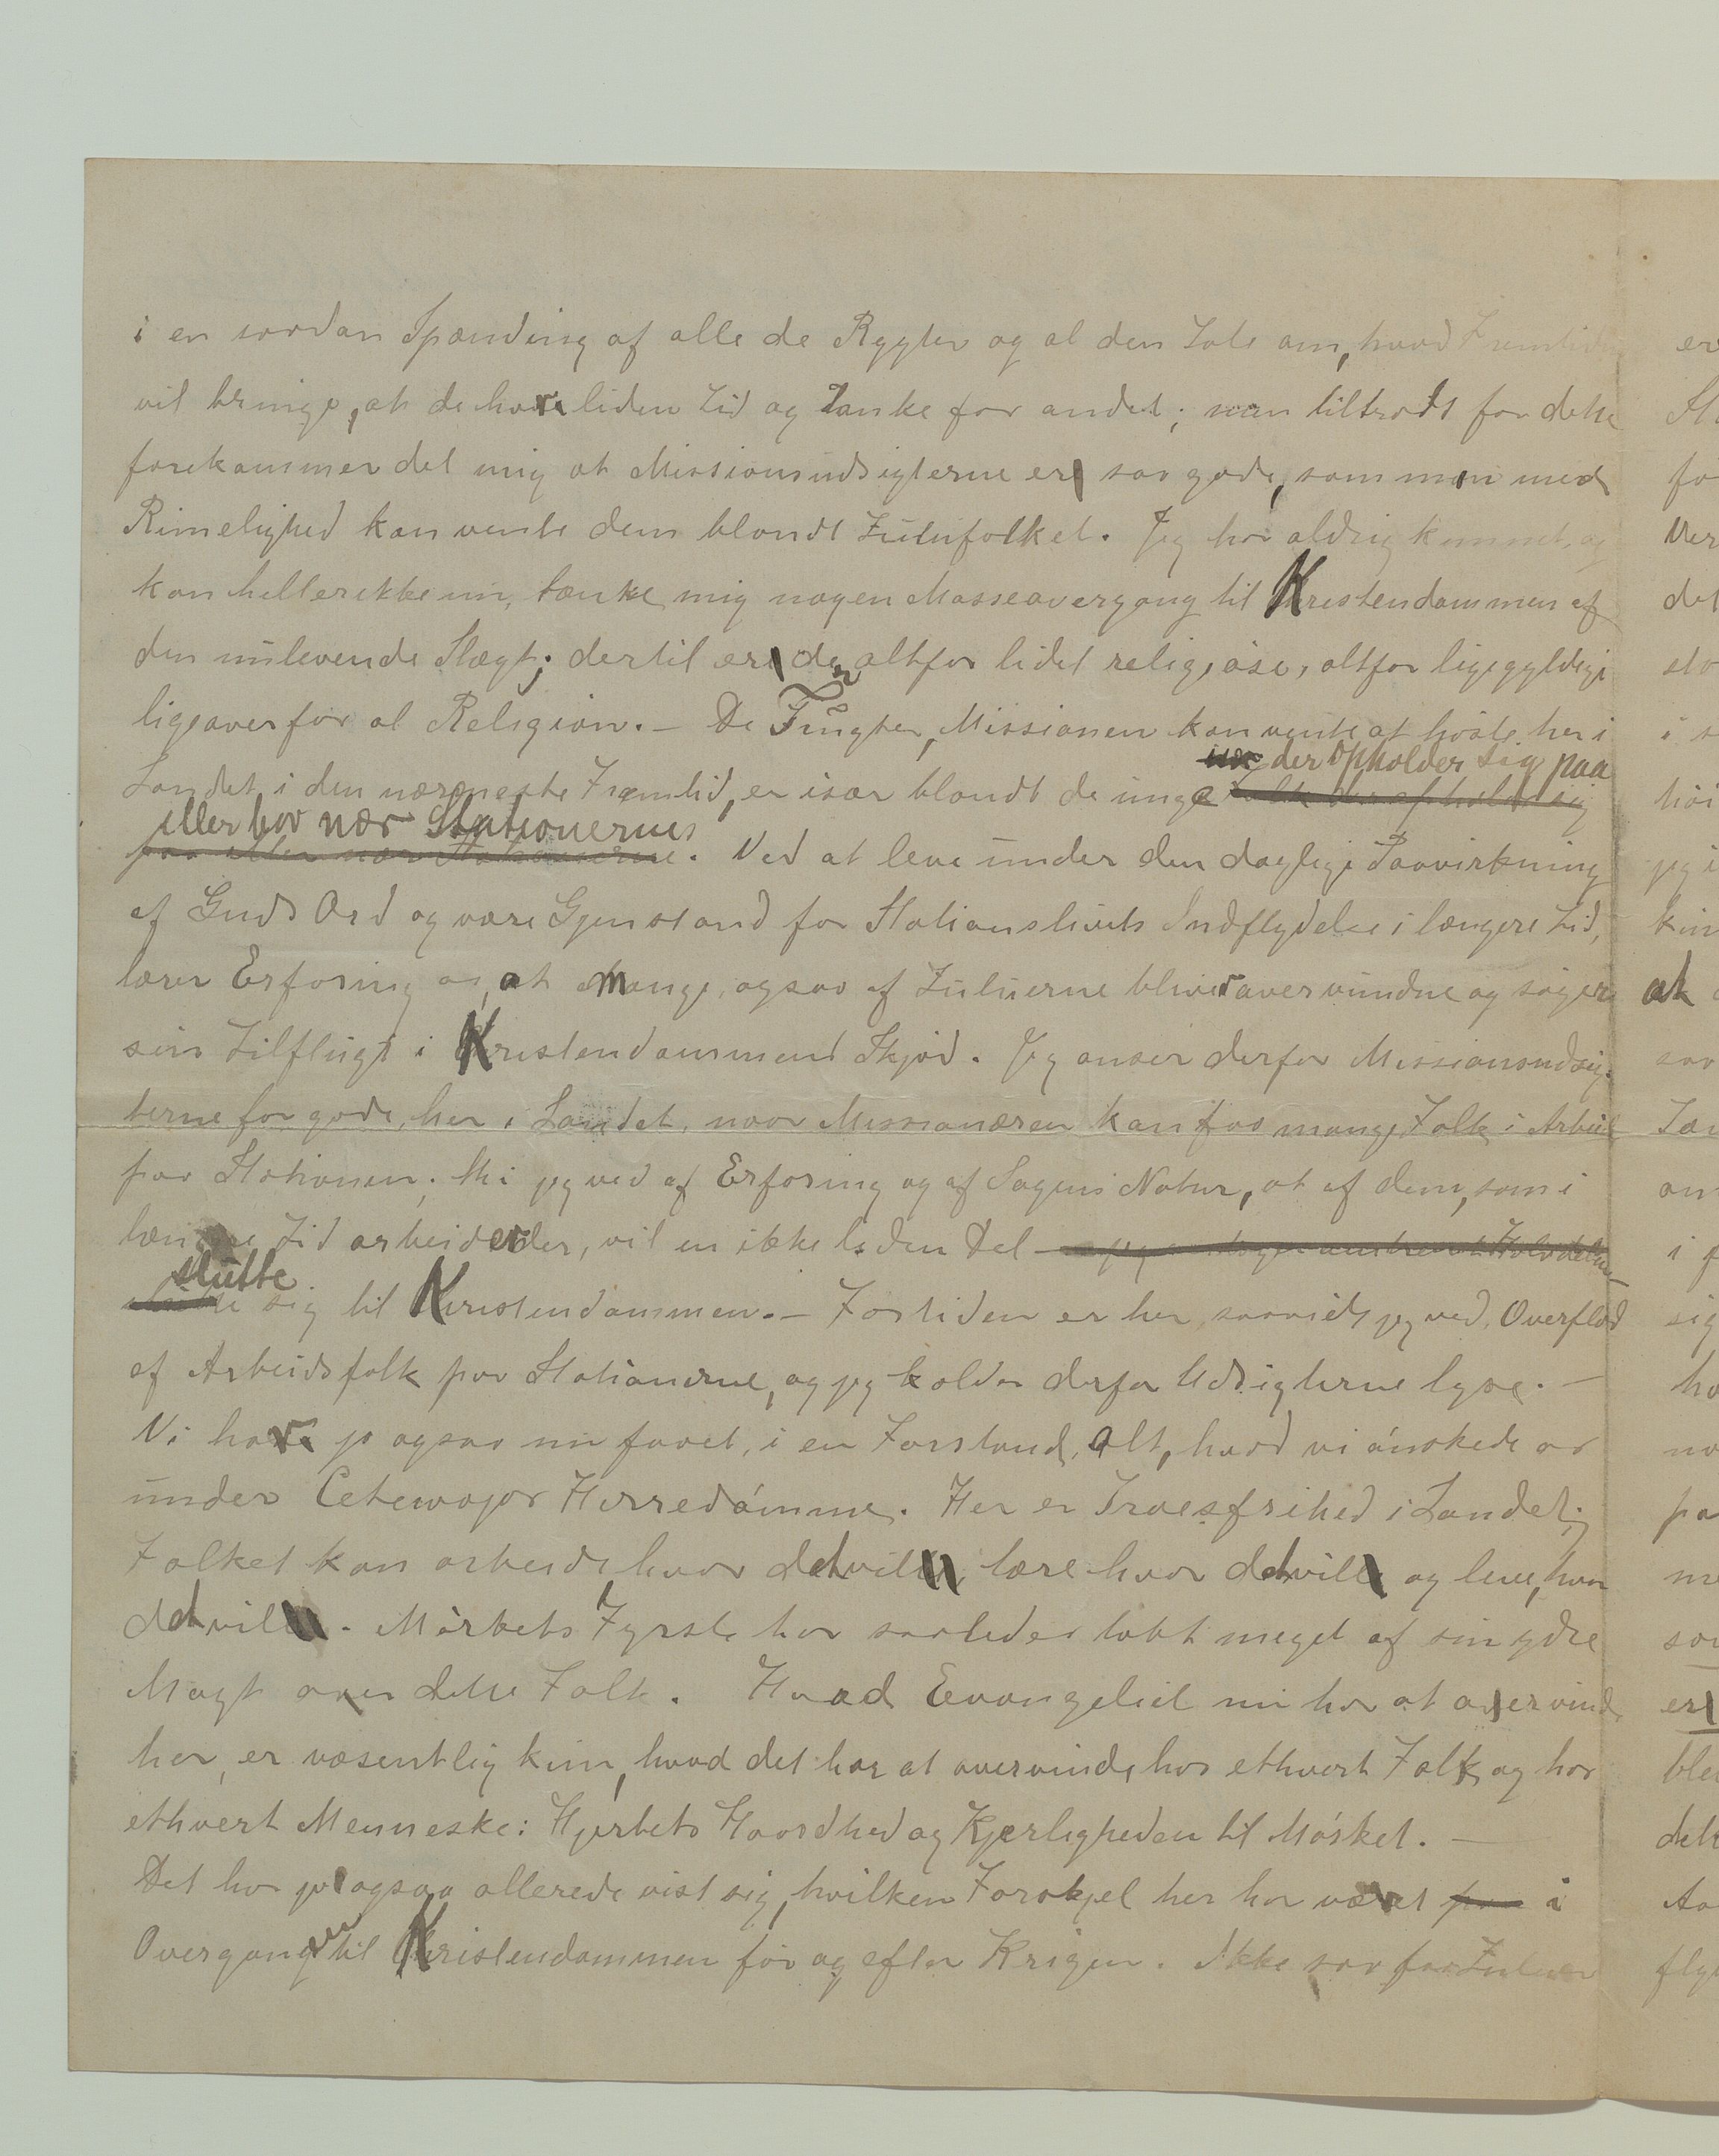 i en saadan Spænding af alle de Rygter og al den Tale om, hvad Fremtiden
vil bringe, at de har liden Tid og Tanke for andet; men tiltrods for dette
forekommer det mig at Missionsudsigterne er saa gode, som man med
Rimelighed kan vente dem blandt Zulufolket. Jeg har aldrig kunnet, og
kan heller ikke nu, tænke mig nogen Masseovergang til Kristendommen af
den nulevende Slægt; dertil er den altfor lidet religiøse, altfor ligegyldige
ligeoverfor al Religion. — De Frugter, Missionen kan vente at høste her i
Landet i den nærmeste Fremtid, er især blandt de unge der opholder sig paa
eller bor nær Stationerne. Ved at leve under den daglige Paavirkning
af Guds Ord og være Gjenstand for Stationslivets Indflydelse i længere Tid,
lærer Erfaring os, at mange, ogsaa af Zuluerne bliver overvundne og søger
sin Tilflugt i Kristendommens Skjød. Jeg anser derfor Missionsudsig-
terne for gode, her i Landet, naar Missionæren kan faa mange Folk i Arbeid
paa Stationen; thi jeg ved af Erfaring og af Sagens Natur, at af dem, som i
længere Tid arbeider der, vil en ikke liden Del
slutte sig til Kristendommen. — Fortiden er her, saavidt jeg ved, Overflod
af Arbeidsfolk paa Stationerne, og jeg holder derfor Udsigterne lyse. —
Vi har jo ogsaa nu faaet, i en Forstand, alt, hvad vi ønskede os
under Cetewajos Herredømme. Her er Troesfrihed i Landet;
Folket kan arbeide hvor det vil, lære hvor det vil og leve, hvor
det vil. Mørkets Fyrste har saaledes tabt meget af sin ydre
Magt over dette Folk. Hvad Evangeliet nu har at overvinde
her, er væsentlig kun, hvad det har at overvinde hos ethvert Folk og hos
ethvert Menneske: Hjertets Haardhed og Kjærligheden til Mørket. —
Det har jo ogsaa allerede vist sig, hvilken Forskjel her har været i
Overgangen til Kristendommen før og efter Krigen. Ikke saa faa Zuluer